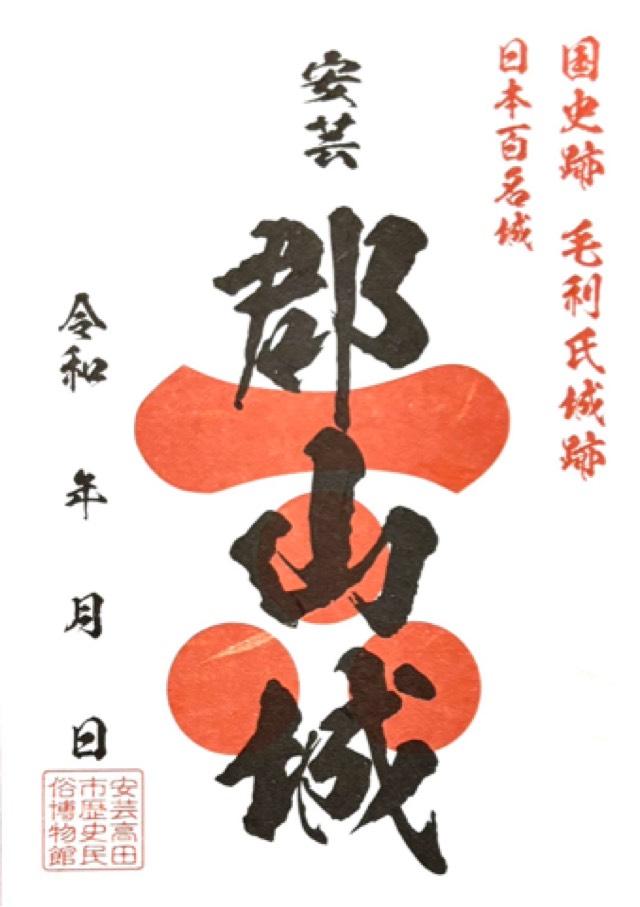 国史跡 毛利氏城跡
日本百名城
安芸
郡山城
令和 年 月 日
安芸高田
市歴史民
俗博物館